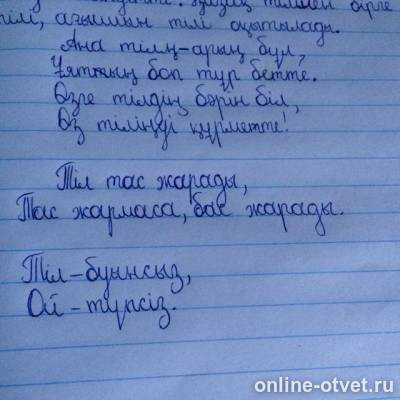 қазақ тілімен бірге
тілі, ағылшын тілі оқытылады.
Ана тілің-арың бұл,
Ұятың боп тұр бетте.
Өзге тілдің бәрін біл,
Өз тіліңді құрметте!
Тіл тас жарады,
Тас жармаса, бас жарады.
Тіл-буынсыз,
Ой-түпсіз.
online-otvet.ru